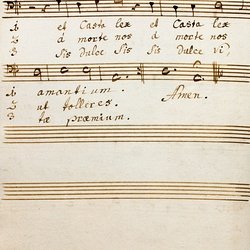 1 et Casta lex et Casta lex
2 à morte nos à morte nos
3 Sis dulce Sis Sis dulce vi,
1 amantium. Amen.
2 ut tolleres.
3 tæ præmium.